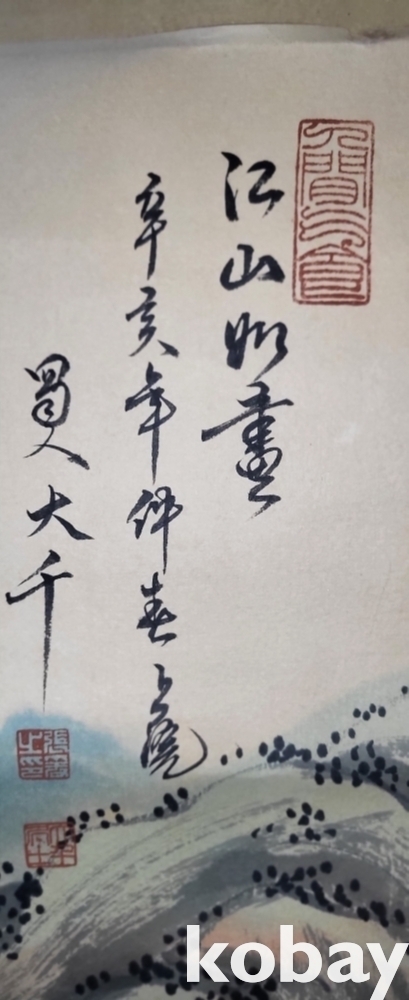 江山如畫
辛亥年仲春上浣
蜀人大千
kobay